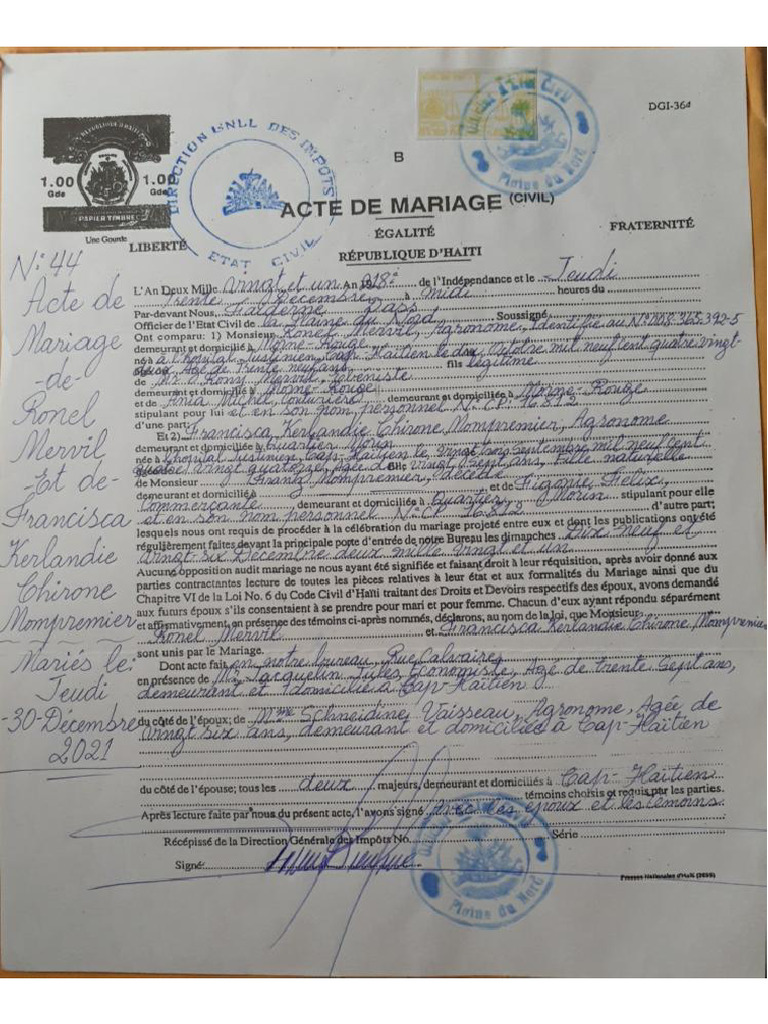 DGI-364
REPUBLIQUE D'HAITI
1.00 Gde
1.00 Gde
PAPIER TIMBRE
Une Gourde
DIRECTION GNLL DES IMPOTS
ETAT CIVIL
Plaine du Nord
B
ACTE DE MARIAGE (CIVIL)
LIBERTÉ
ÉGALITÉ
FRATERNITÉ
RÉPUBLIQUE D'HAITI
N: 44
Acte de
Mariage
-de-
Ronel
Mervil
-Et de-
Francisca
Kerlandie
Chirone
Mompremier
Mariés le:
Jeudi
-30-Décembre
2021
L'An Deux Mille vingt et un An 218e de l'Indépendance et le Jeudi
Trente Décembre à midi heures du
Par-devant Nous, Soussigné
Officier de l'Etat Civil de la Plaine du Nord
Ont comparu: 1) Monsieur Ronel Mervil, Agronome, Identifié au N° 008-365-392-5
demeurant et domicilié à Morne-Rouge
né à à l'hôpital Justinien, Cap-Haïtien le dix Octobre mil neuf cent quatre vingt
deux, Agé de Trente neuf ans, fils légitime
de Mr. Rony Mervil, ébéniste
demeurant et domicilié à Morne-Rouge
et de Michel, couturière demeurant et domiciliée à Morne-Rouge
stipulant pour lui et en son nom personnel N: CP:
d'une part;
Et 2) Francisca Kerlandie Chirone Mompremier, Agronome
demeurant et domiciliée à Quartier Morin
née à l'hôpital Justinien, Cap-Haïtien le vingt trois Septembre mil neuf cent
quatre vingt quatorze, Agée de vingt sept ans, Fille naturelle
de Monsieur Frank Mompremier, décédé et de Felix,
demeurant et domicilié à
Commerçante demeurant et domiciliée à Quartier Morin stipulant pour elle
et en son nom personnel N: CP d'autre part;
lesquels nous ont requis de procéder à la célébration du mariage projeté entre eux et dont les publications ont été
régulièrement faites devant la principale porte d'entrée de notre Bureau les dimanches Dix Neuf et
vingt six Décembre deux mille vingt et un
Aucune opposition audit mariage ne nous ayant été signifiée et faisant droit à leur réquisition, après avoir donné aux
parties contractantes lecture de toutes les pièces relatives à leur état et aux formalités du Mariage ainsi que du
Chapitre VI de la Loi No. 6 du Code Civil d'Haïti traitant des Droits et Devoirs respectifs des époux, avons demandé
aux futurs époux s'ils consentaient à se prendre pour mari et pour femme. Chacun d'eux ayant répondu séparément
et affirmativement, en présence des témoins ci-après nommés, déclarons, au nom de la loi, que Monsieur
Ronel Mervil et Francisca Kerlandie Chirone Mompremier
sont unis par le Mariage.
Dont acte fait en notre bureau, Rue Calvaires
en présence de Mr. Jacquelin Jules, Economiste, Agé de trente Sept ans,
demeurant et domicilié à Cap-Haïtien
du côté de l'époux; de Mme Schneidine Vaisseau, Agronome, Agée de
vingt six ans, demeurant et domiciliée à Cap-Haïtien
du côté de l'épouse; tous les deux majeurs, demeurant et domiciliés à Cap-Haïtien
témoins choisis et requis par les parties.
Après lecture faite par nous du présent acte, l'avons signé avec les époux et les témoins
Récépissé de la Direction Générale des Impôts No. Série
Signé:
Plaine du Nord
Presses Nationales d'Haïti